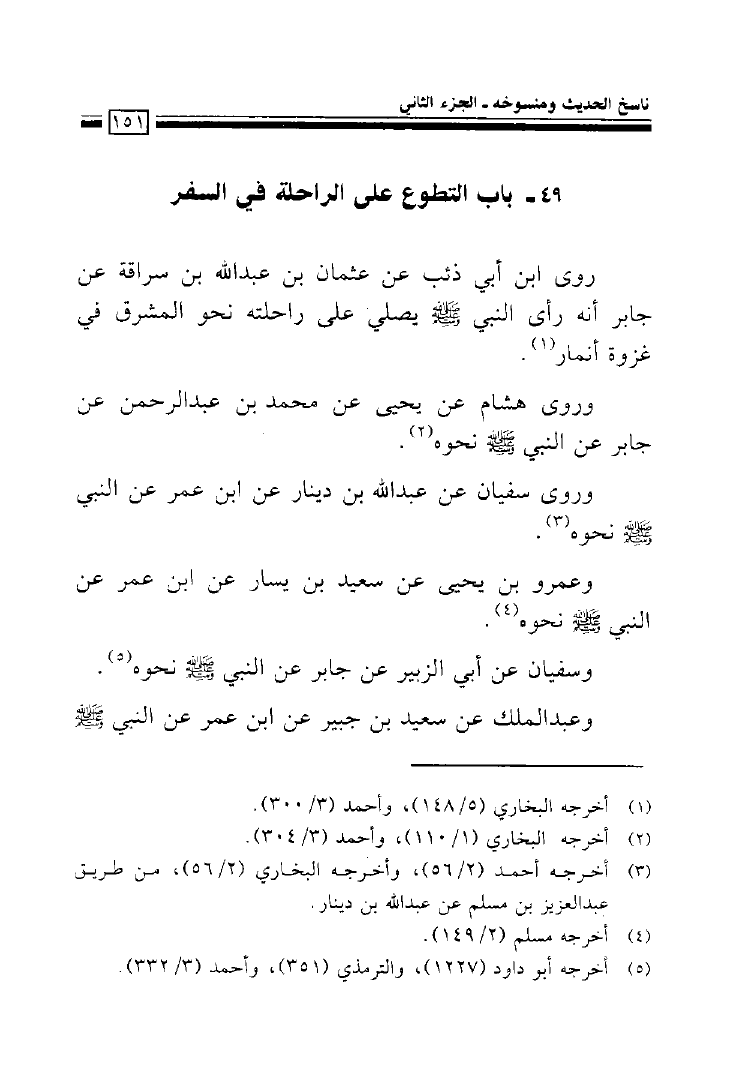 ناسخ الحديث ومنسوخه ـ الجزء الثاني
١٥١
٤٩ ـ باب التطوع على الراحلة في السفر
روى ابن أبي ذئب عن عثمان بن عبدالله بن سراقة عن
جابر أنه رأى النبي ﷺ يصلي على راحلته نحو المشرق في
غزوة أنمار(١).
وروى هشام عن يحيى عن محمد بن عبدالرحمن عن
جابر عن النبي ﷺ نحوه(٢).
وروى سفيان عن عبدالله بن دينار عن ابن عمر عن النبي
ﷺ نحوه(٣).
وعمرو بن يحيى عن سعيد بن يسار عن ابن عمر عن
النبي ﷺ نحوه(٤).
وسفيان عن أبي الزبير عن جابر عن النبي ﷺ نحوه(٥).
وعبدالملك عن سعيد بن جبير عن ابن عمر عن النبي ﷺ
(١) أخرجه البخاري (١٤٨/٥)، وأحمد (٣٠٠/٣).
(٢) أخرجه البخاري (١١٠/١)، وأحمد (٣٠٤/٣).
(٣) أخرجه أحمد (٥٦/٢)، وأخرجه البخاري (٥٦/٢)، من طريق
عبدالعزيز بن مسلم عن عبدالله بن دينار.
(٤) أخرجه مسلم (١٤٩/٢).
(٥) أخرجه أبو داود (١٢٢٧)، والترمذي (٣٥١)، وأحمد (٣٣٢/٣).